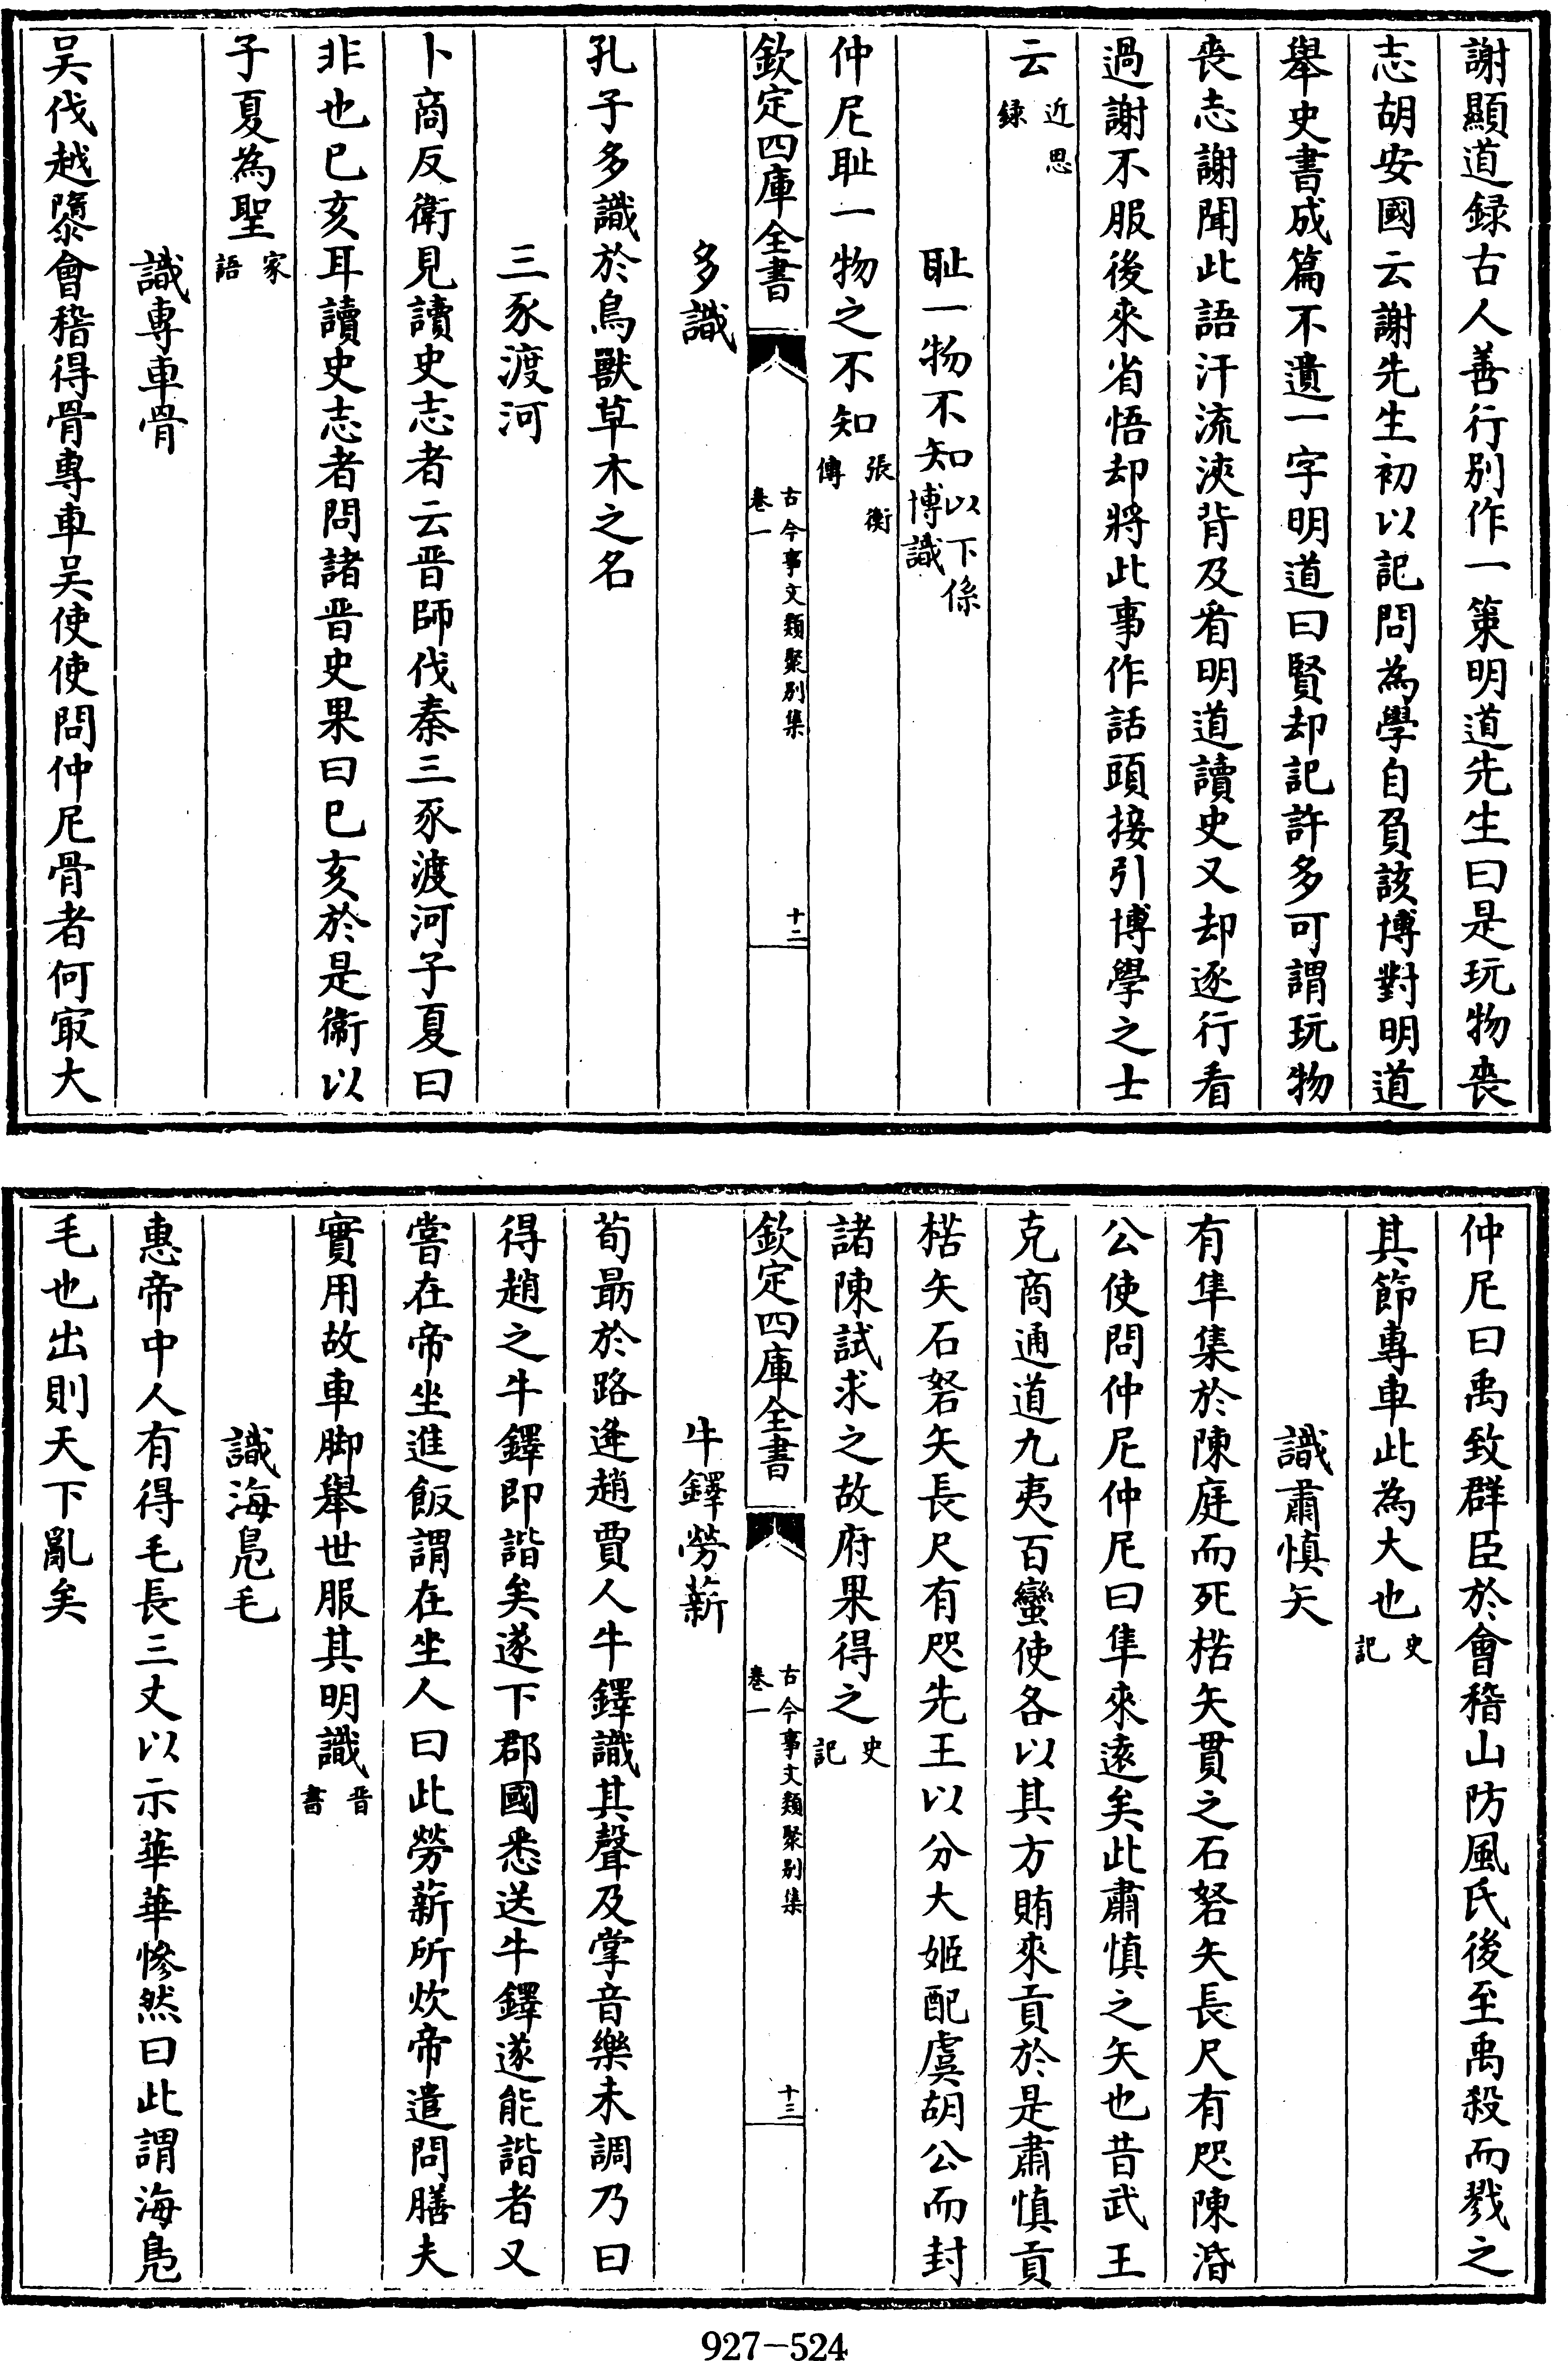 謝顯道録古人善行别作一䇿明道先生曰是玩物喪
志胡安國云謝先生初以記問為學自負該博對明道
舉史書成篇不遺一字明道曰賢却記許多可謂玩物
喪志謝聞此語汗流浹背及看明道讀史又却逐行看
過謝不服後來省悟却將此事作話頭接引博學之士
云近思録
恥一物不知以下係博識
仲尼耻一物之不知張衡傳
欽定四庫全書 古今事文類聚别集卷一 十二
多識
孔子多識於鳥獸草木之名
三豕渡河
卜商反衛見讀史志者云晋師伐秦三豕渡河子夏曰
非也已亥耳讀史志者問諸晋史果曰已亥於是衞以
子夏為聖家語
識專車骨
吴伐越隳會稽得骨專車吴使使問仲尼骨者何㝡大
仲尼曰禹致群臣於會稽山防風氏後至禹殺而戮之
其節專車此為大也史記
識肅慎矢
有隼集於陳庭而死楛矢貫之石砮矢長尺有咫陳湣
公使問仲尼仲尼曰隼來遠矣此肅慎之矢也昔武王
克商通道九夷百蠻使各以其方賄來貢於是肅慎貢
楛矢石砮矢長尺有咫先王以分大姬配虞胡公而封
諸陳試求之故府果得之史記
欽定四庫全書 古今事文類聚别集卷一 十三
牛鐸勞薪
荀朂於路逢趙賈人牛鐸識其聲及掌音樂未調乃曰
得趙之牛鐸即諧矣遂下郡國悉送牛鐸遂能諧者又
嘗在帝坐進飯謂在坐人曰此勞薪所炊帝遣問膳夫
實用故車脚舉世服其明識晋書
識海鳬毛
惠帝中人有得毛長三丈以示華華慘然曰此謂海鳬
毛也出則天下亂矣
927-524